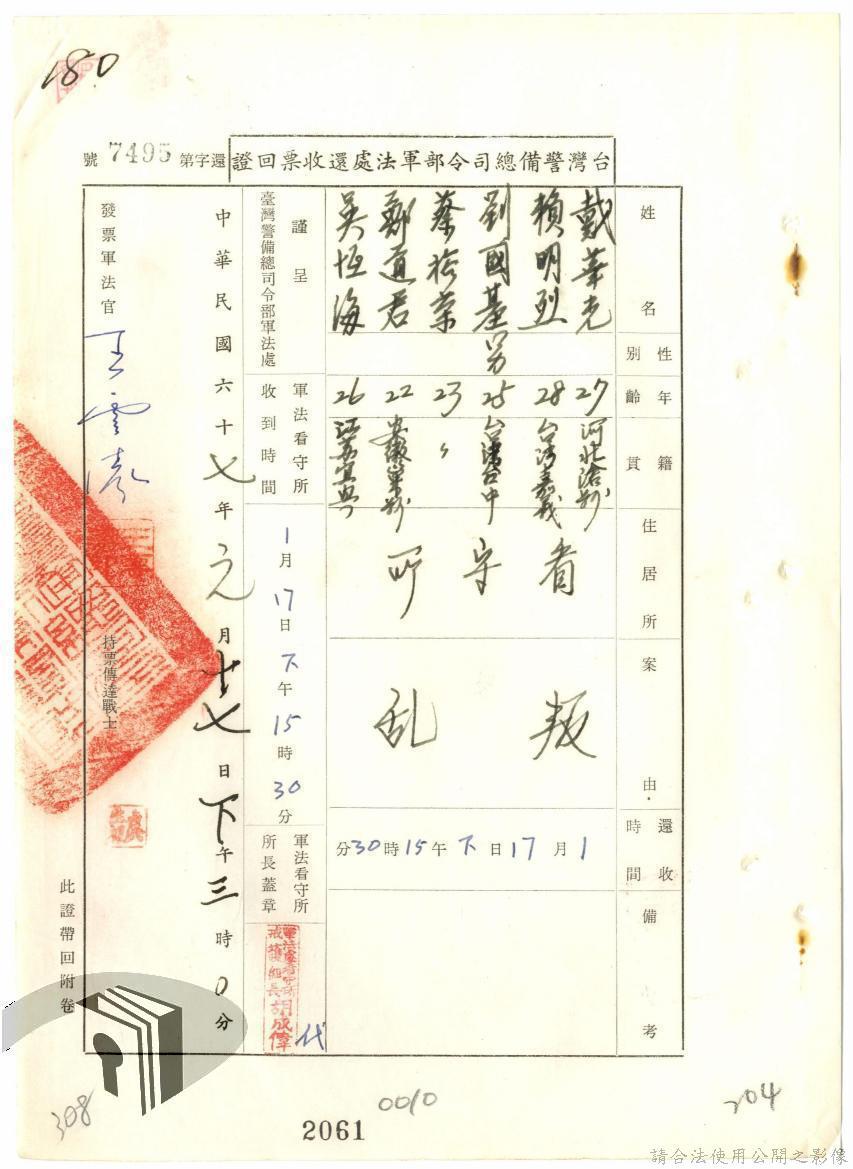 180
台灣警備總司令部軍法處還收票回證
還字第7495號
姓名
戴華光
賴明烈
劉國基
蔡裕榮
鄭道君
吳恆海
性別
男
年齡
27
28
25
23
22
26
籍貫
河北滄縣
台灣嘉義
台灣台中
〃
安徽
江蘇宜興
住居所
看守所
案由
叛乱
還收時間
1月17日下午15時30分
備考
謹呈
臺灣警備總司令部軍法處
軍法看守所收到時間
1月17日下午15時30分
軍法看守所所長蓋章
戒護組長胡成偉
代
中華民國六十七年元月十七日下午三時0分
發票軍法官
王雲濤
持票傳達戰士
此證帶回附卷
308
0010
204
2061
請合法使用公開之影像